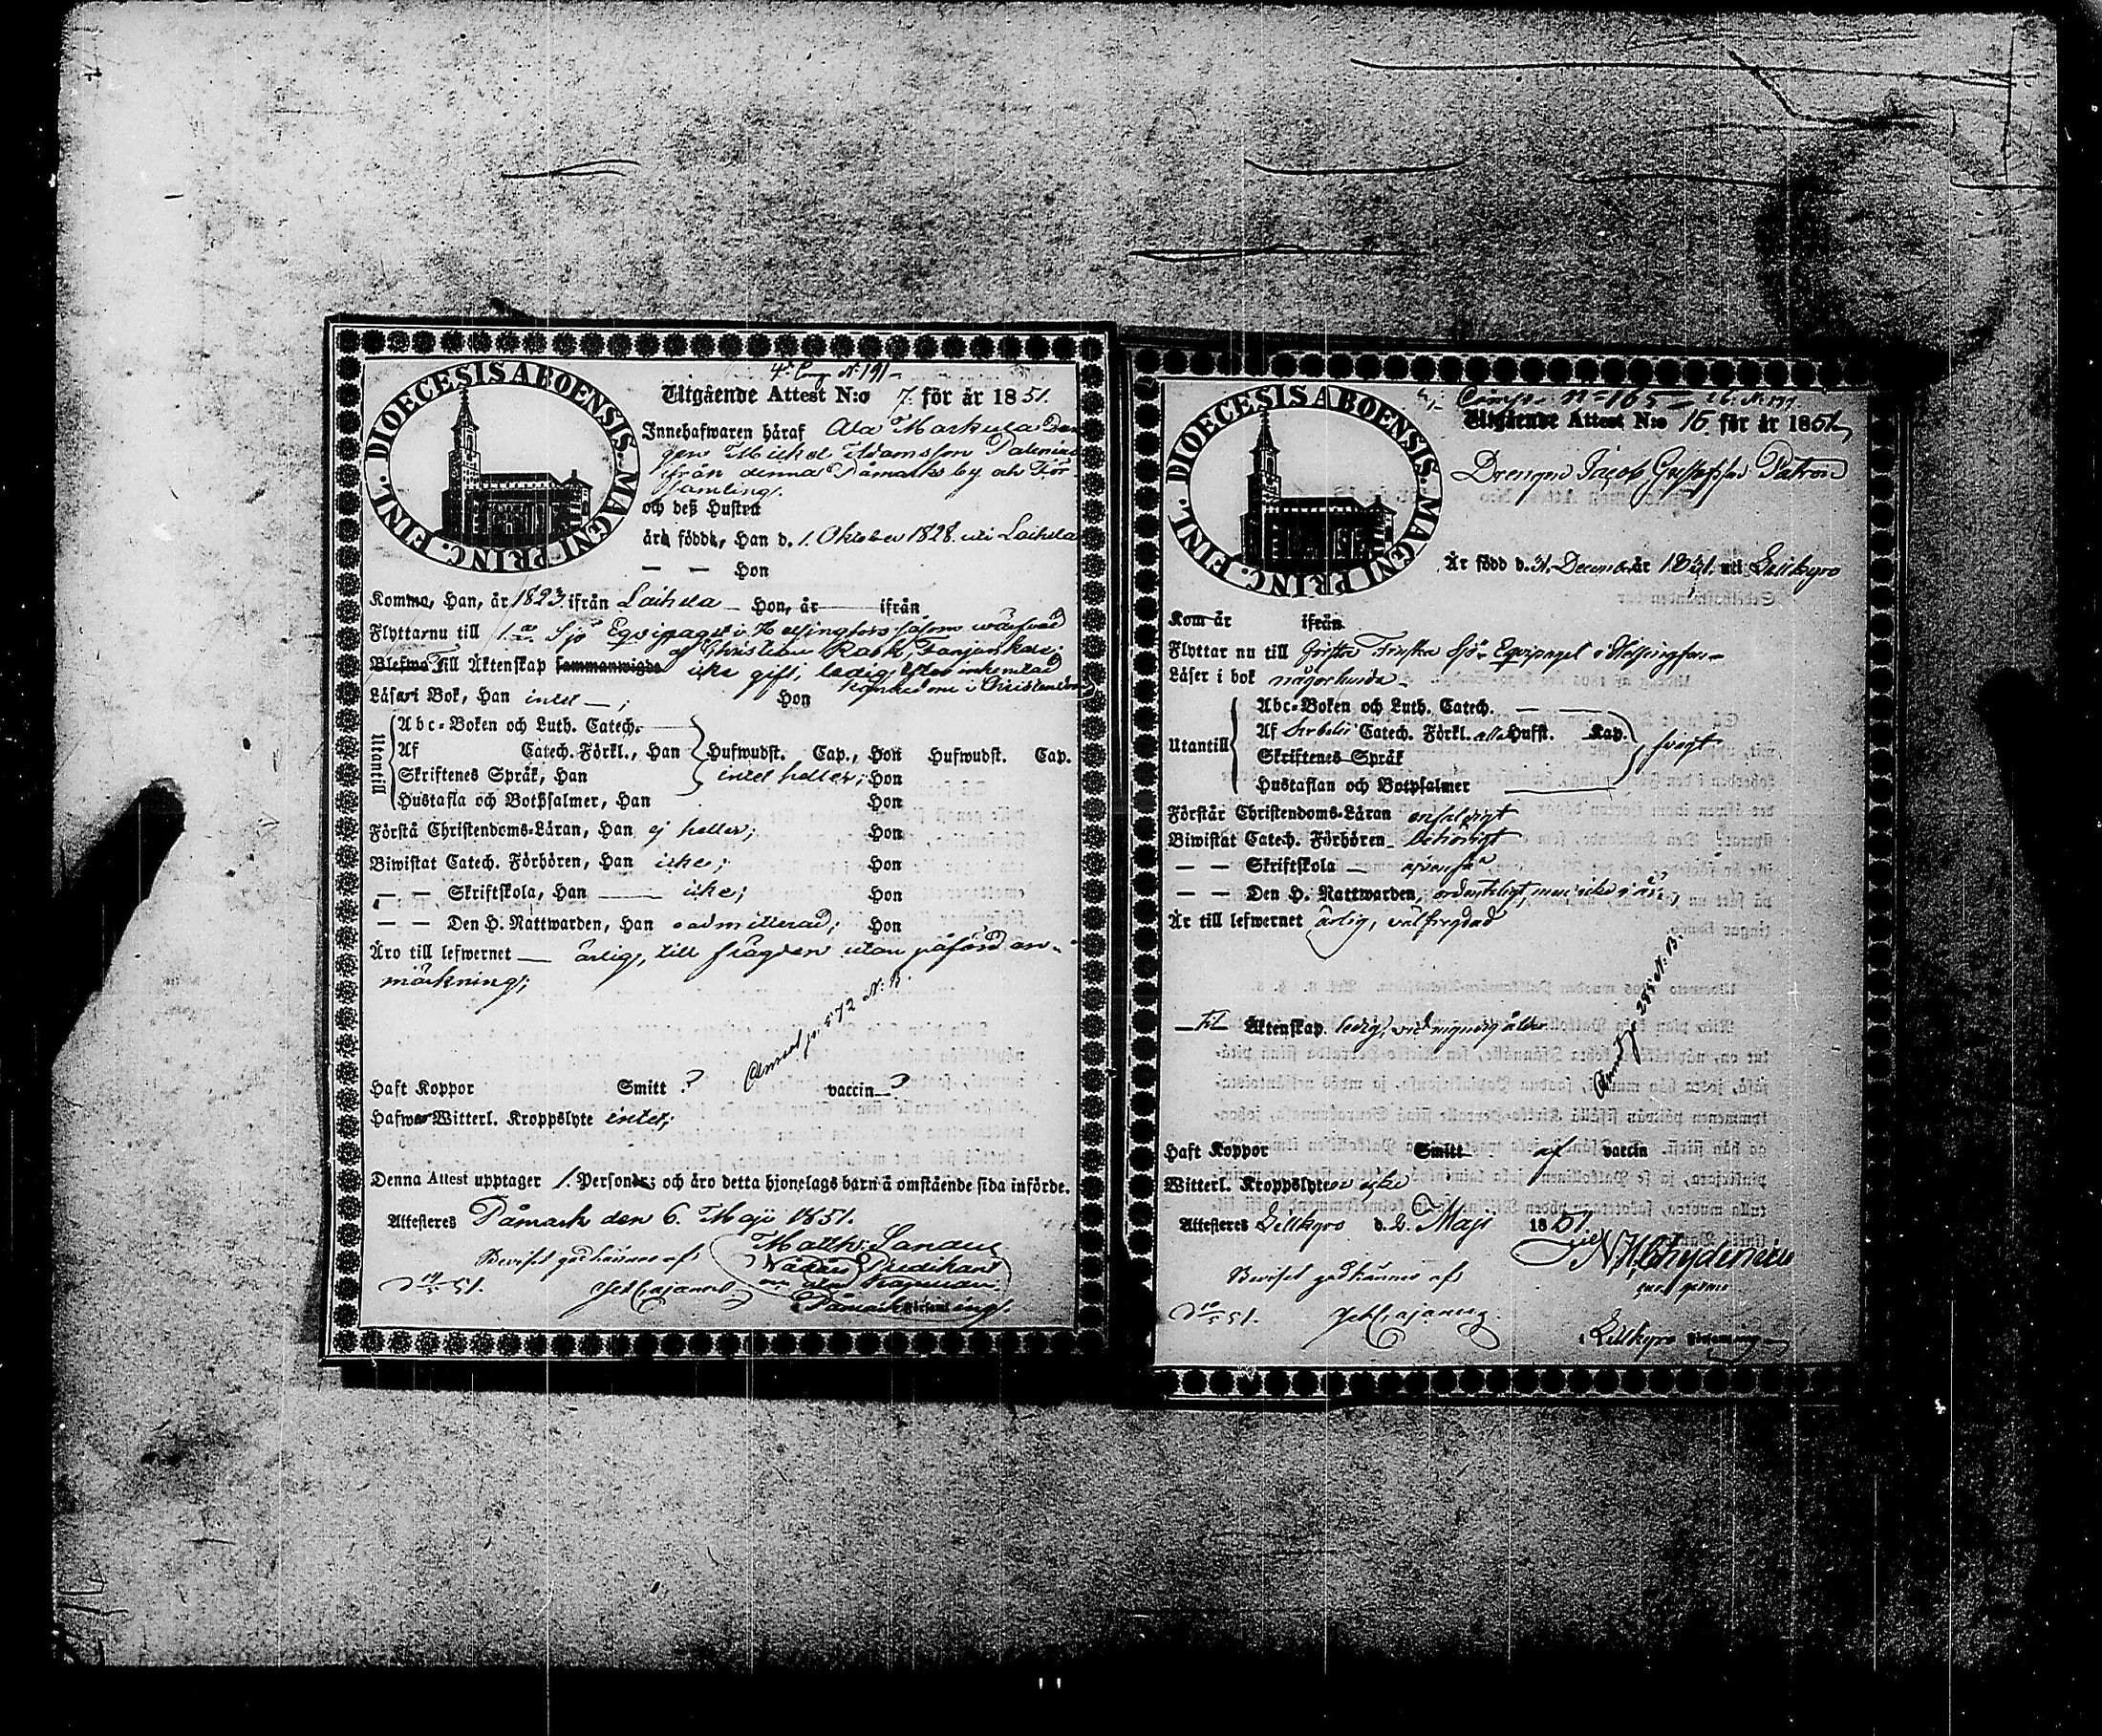 4. Comp N. 191
DIOECESIS ABOENSIS MAGNI PRINC. FINL.
Utgående Attest N:o 7. för år 1851.
Innehafwaren häraf Ala Markula Dren
gen Michel Adamsson Palenius
ifrån denna Påmarks by och För
samling.
och deß Hustru
äro födde, Han d. 1. Oktober 1828. uti Laihela
— — Hon
Komne, Han, år 1823 ifrån Laihela — Hon, år — ifrån
Flyttar nu till 1:a Sjö Eqvipaget i Helsingfors såsom wärfvad
af Christian Rask
Blefwo Till Äktenskap sammanwigde icke gift, ledig; utan inhemtad
kännedom i Christendom
Läsa i Bok, Han intet —; Hon
Utantill
Abc-Boken och Luth. Catech.
Af Catech. Förkl., Han Hufwudst. Cap., Hon Hufwudst. Cap.
Skriftenes Språk, Han intet heller; Hon
Hustafla och Botpsalmer, Han Hon
Förstå Christendoms-Läran, Han ej heller; Hon
Biwistat Catech. Förhören, Han icke; Hon
— — Skriftskola, Han — icke; Hon
— — Den H. Nattwarden, Han oadmitterad; Hon
Äro till lefwernet — ärlig, till frägden utan påförd an-
märkning;
Annot. p. 572 N. B.
Haft Koppor Smitt ? vaccin ?
Hafwa Witterl. Kroppslyte intet;
Denna Attest upptager 1. Person; och äro detta hjonelags barn å omstående sida införde.
Attesteres Påmark den 6. Maji 1851.
Matth: Sandell
Beviset godkännes af
Nådårs Predikant
D 19/5 51. Joh Cajanus.
Påmark Församling.
4 Comp. N=165
DIOECESIS ABOENSIS MAGNI PRINC. FINL.
Utgående Attest N:o 15. för år 1851
Drengen Jacob Gustafsson Patron
Är född d. 31. December år 1831. uti Lillkyro
Kom år ifrån
Flyttar nu till Första Finska Sjö-Eqvipaget i Helsingfors
Läser i bok någorlunda
Utantill
Abc-Boken och Luth. Catech.
Af Svebelii Catech. Förkl. alla Hufst. Kap.
Skriftenes Språk
Hustaflan och Botpsalmer
svagt
Förstår Christendoms-Läran enfaldigt
Biwistat Catech. Förhören behörigt
— — Skriftskola —
— — Den H. Nattwarden, ordenteligt, men icke i år,
Är till lefwernet ärlig, välfregdad
Annot. p. 283 N. B.
till Äktenskap. ledig, vid myndig ålder
Haft Koppor Smitt af vaccin
Witterl. Kroppslyte icke
Attesteres Lillkyro d. 2. Maji 1851.
N. H. Chydenius
Beviset godkännes af
D 19/5 51. Joh Cajanus.
i Lillkyro Församling